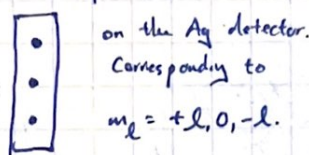 on the Ag detector.
Corresponding to
m_ℓ = +ℓ, 0, -ℓ.